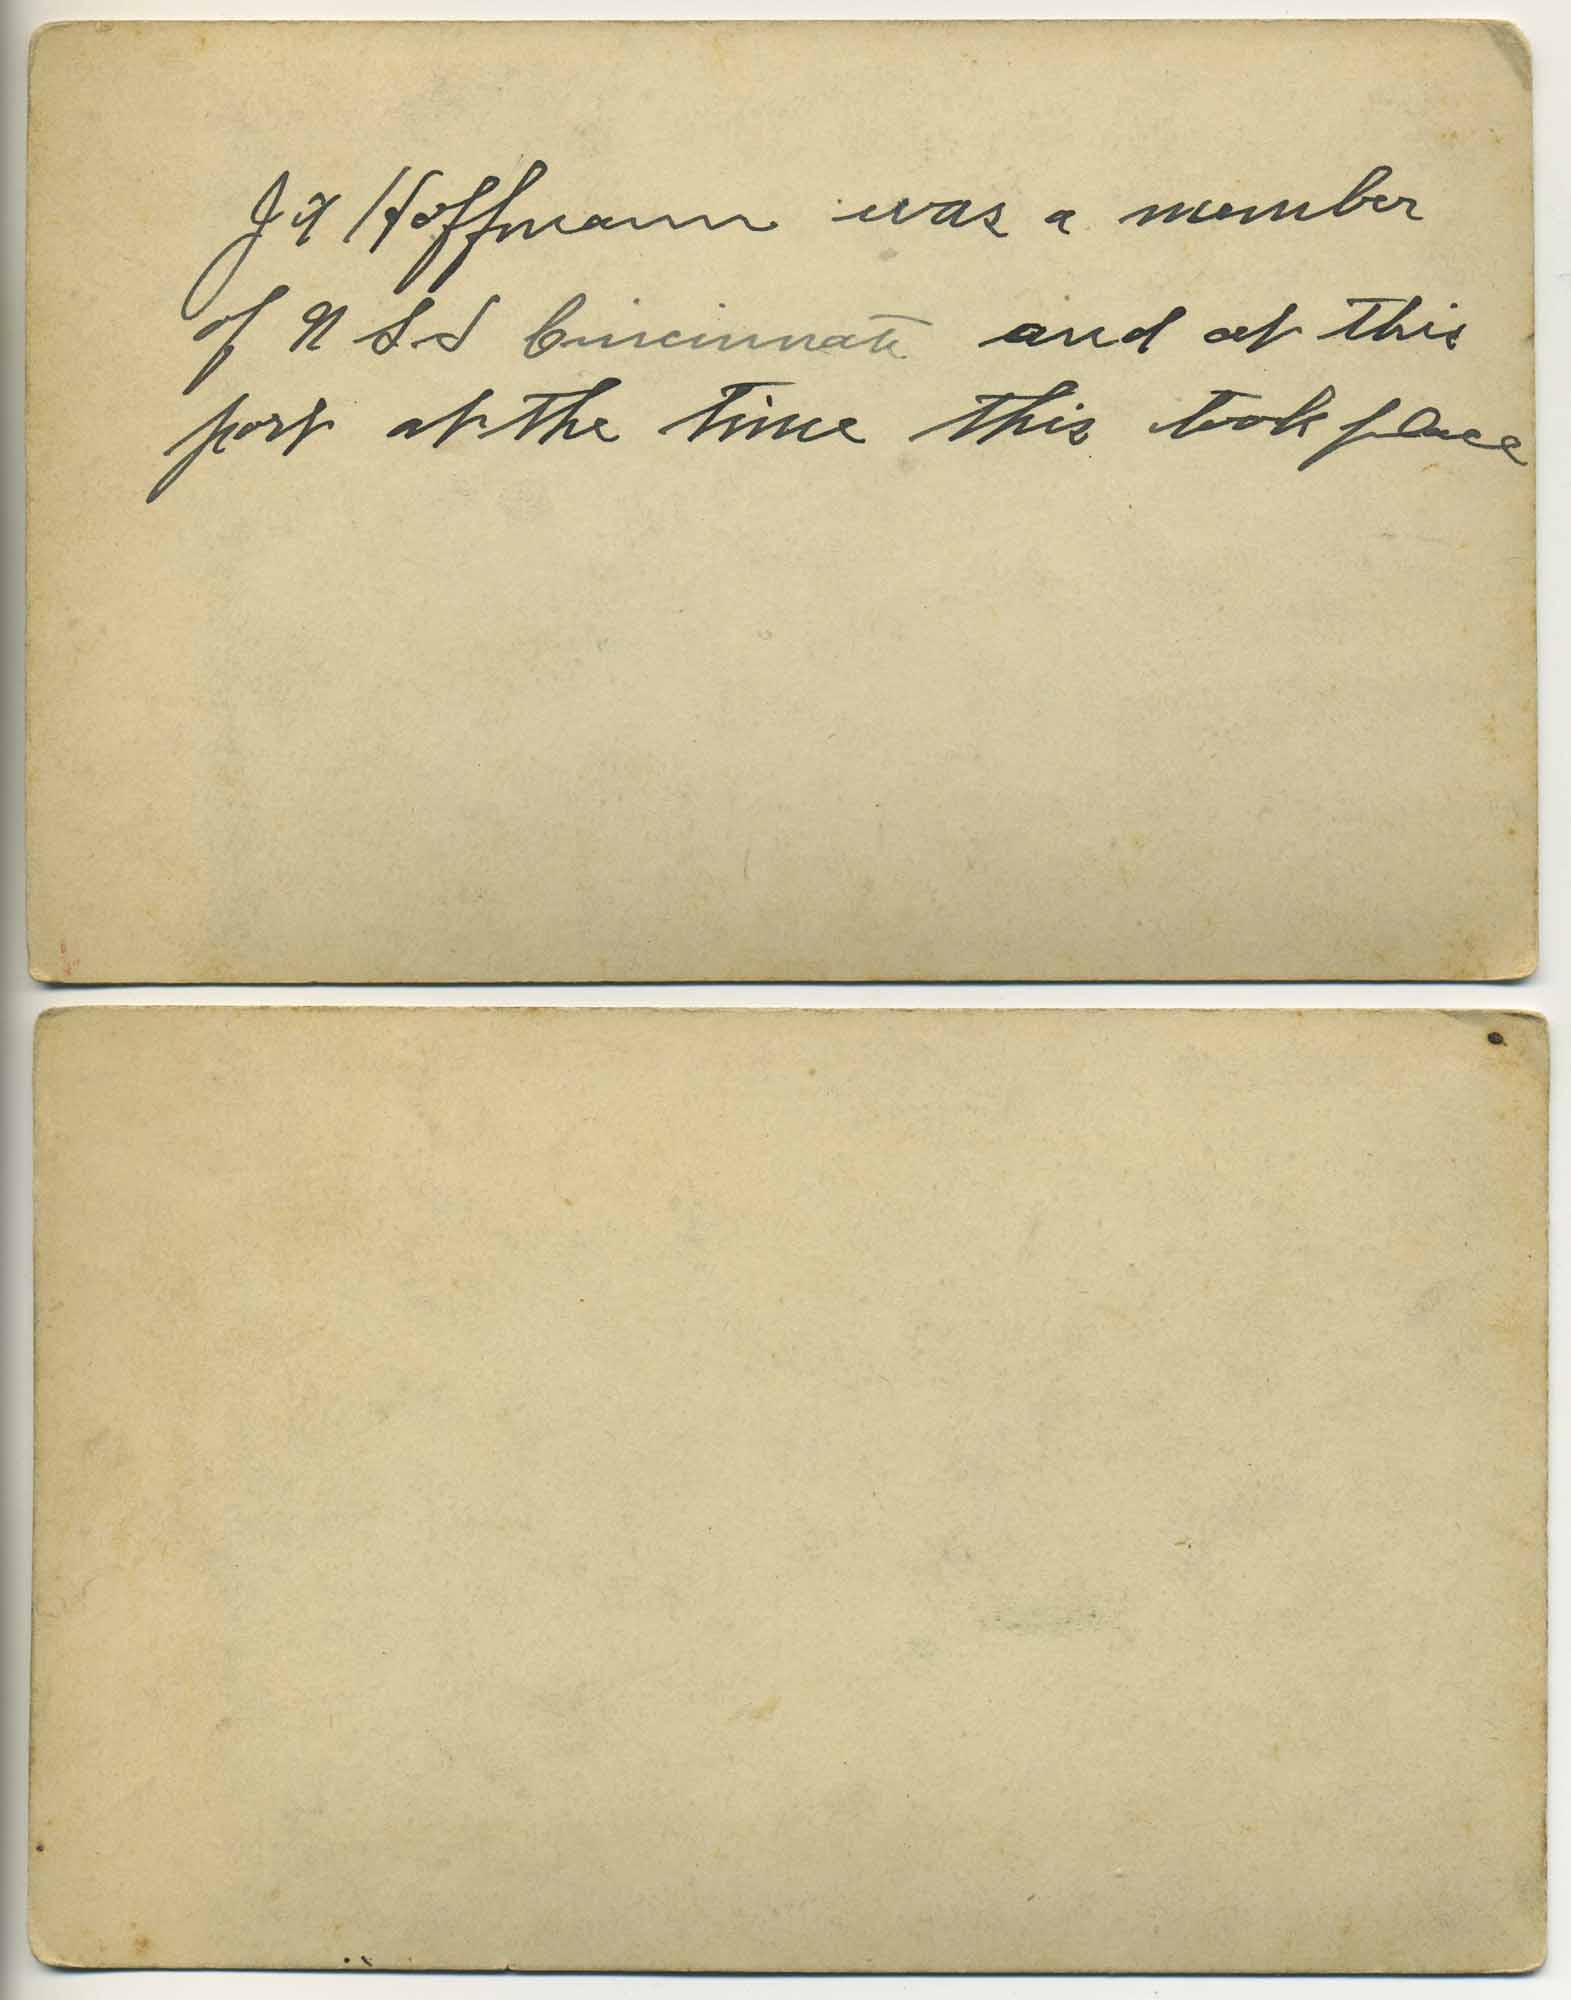 J A Hoffmann was a member
of U S S Cincinnati and at this
port at the time this took place